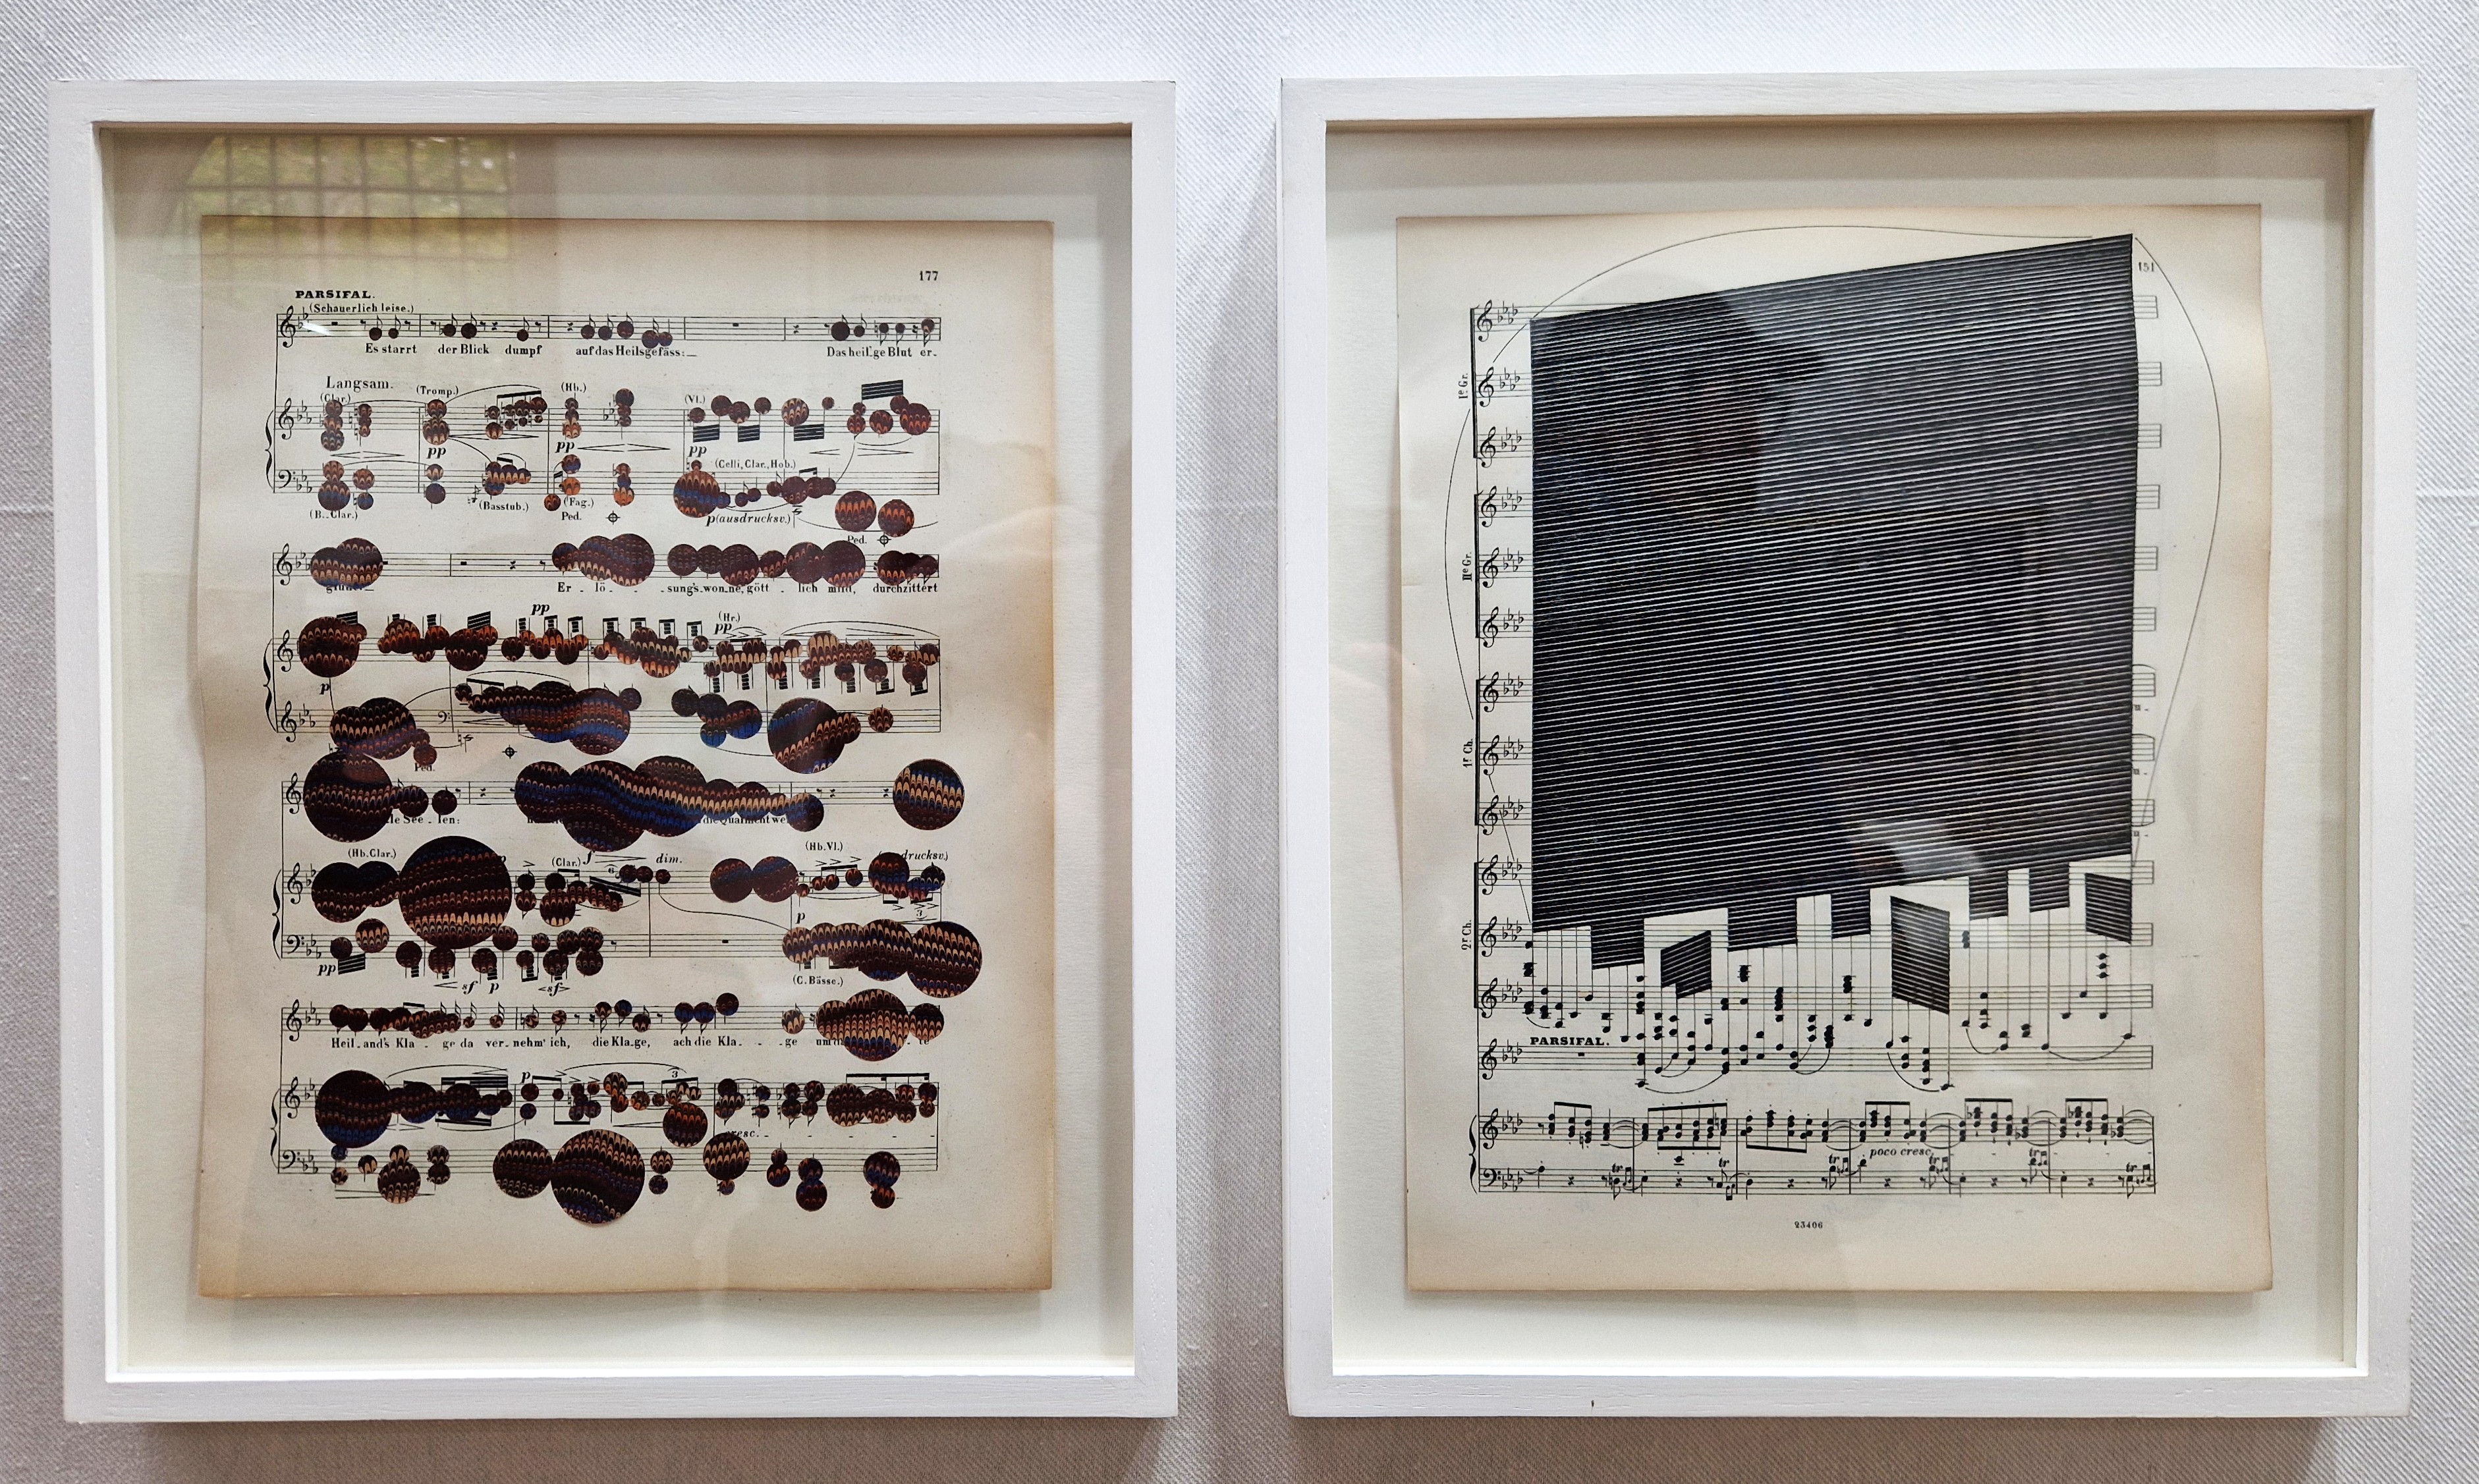 177
PARSIFAL.
(Schauerlich leise.)
Es starrt der Blick dumpf auf das Heilsgefäss:
Das heil'ge Blut er-
Langsam.
(Clar.) (Tromp.) (Hb.) (Vl.)
pp pp pp
(Celli, Clar., Hob.)
(B. Clar.) (Basstub.) (Fag.) p(ausdrucksv.)
Ped. Ped.
Er - lö - sungs-won-ne, gött - lich mild, durchzittert
pp (Hr.)
pp
p
Ped.
le See - len:
die Qual nicht we
(Hb. Clar.) (Clar.) f dim. (Hb. Vl.) drucksv.)
6
p 3
pp sf p sf (C. Bässe.)
Heil-and's Kla - ge da ver-nehm' ich, die Kla-ge, ach die Kla - ge um
p 3
cresc.
151
1e Gr.
IIe Gr.
1r Ch.
2r Ch.
PARSIFAL.
poco cresc.
tr tr tr tr tr
23406